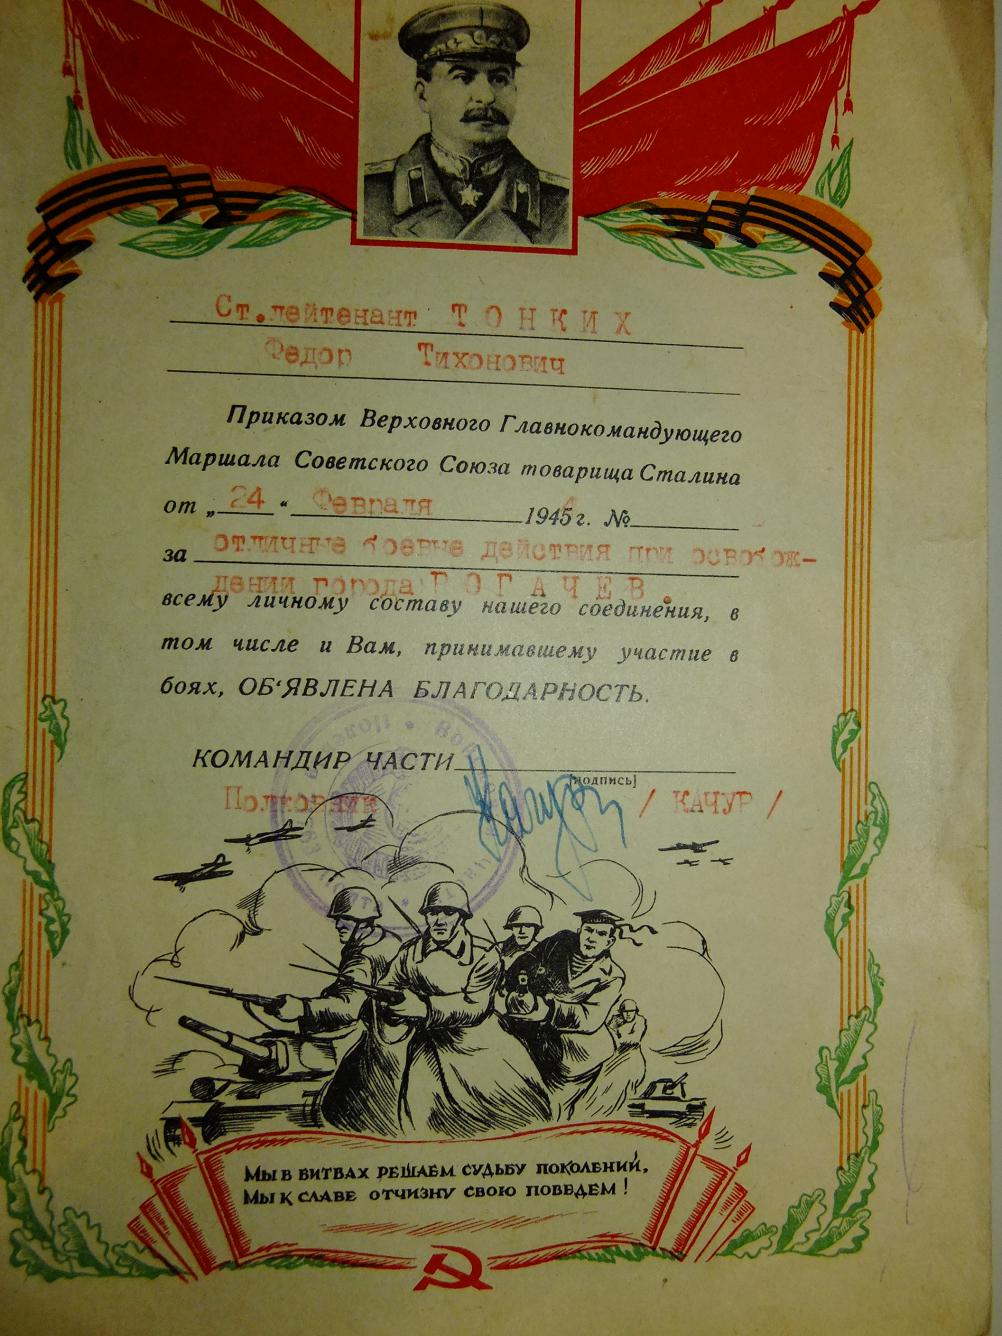 Ст.лейтенант ТОНКИХ
Федор Тихонович
Приказом Верховного Главнокомандующего
Маршала Советского Союза товарища Сталина
от „24“ Февраля 1944 г. №
за отличные боевые действия при освобож-
дении города РОГАЧЕВ.
всему личному составу нашего соединения, в
том числе и Вам, принимавшему участие в
боях, ОБ‘ЯВЛЕНА БЛАГОДАРНОСТЬ.
КОМАНДИР ЧАСТИ
[подпись]
Полковник Качур / КАЧУР /
МЫ В БИТВАХ РЕШАЕМ СУДЬБУ ПОКОЛЕНИЙ,
МЫ К СЛАВЕ ОТЧИЗНУ СВОЮ ПОВЕДЕМ!